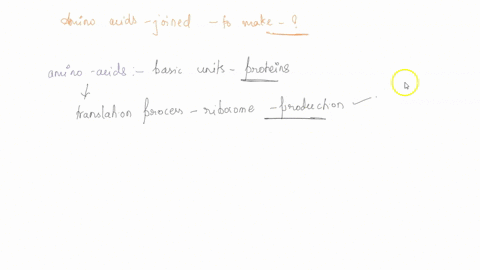 amino acids - joined - to make - ?
amino-acids :- basic units - proteins
↓
translation process - ribosome - production ✓